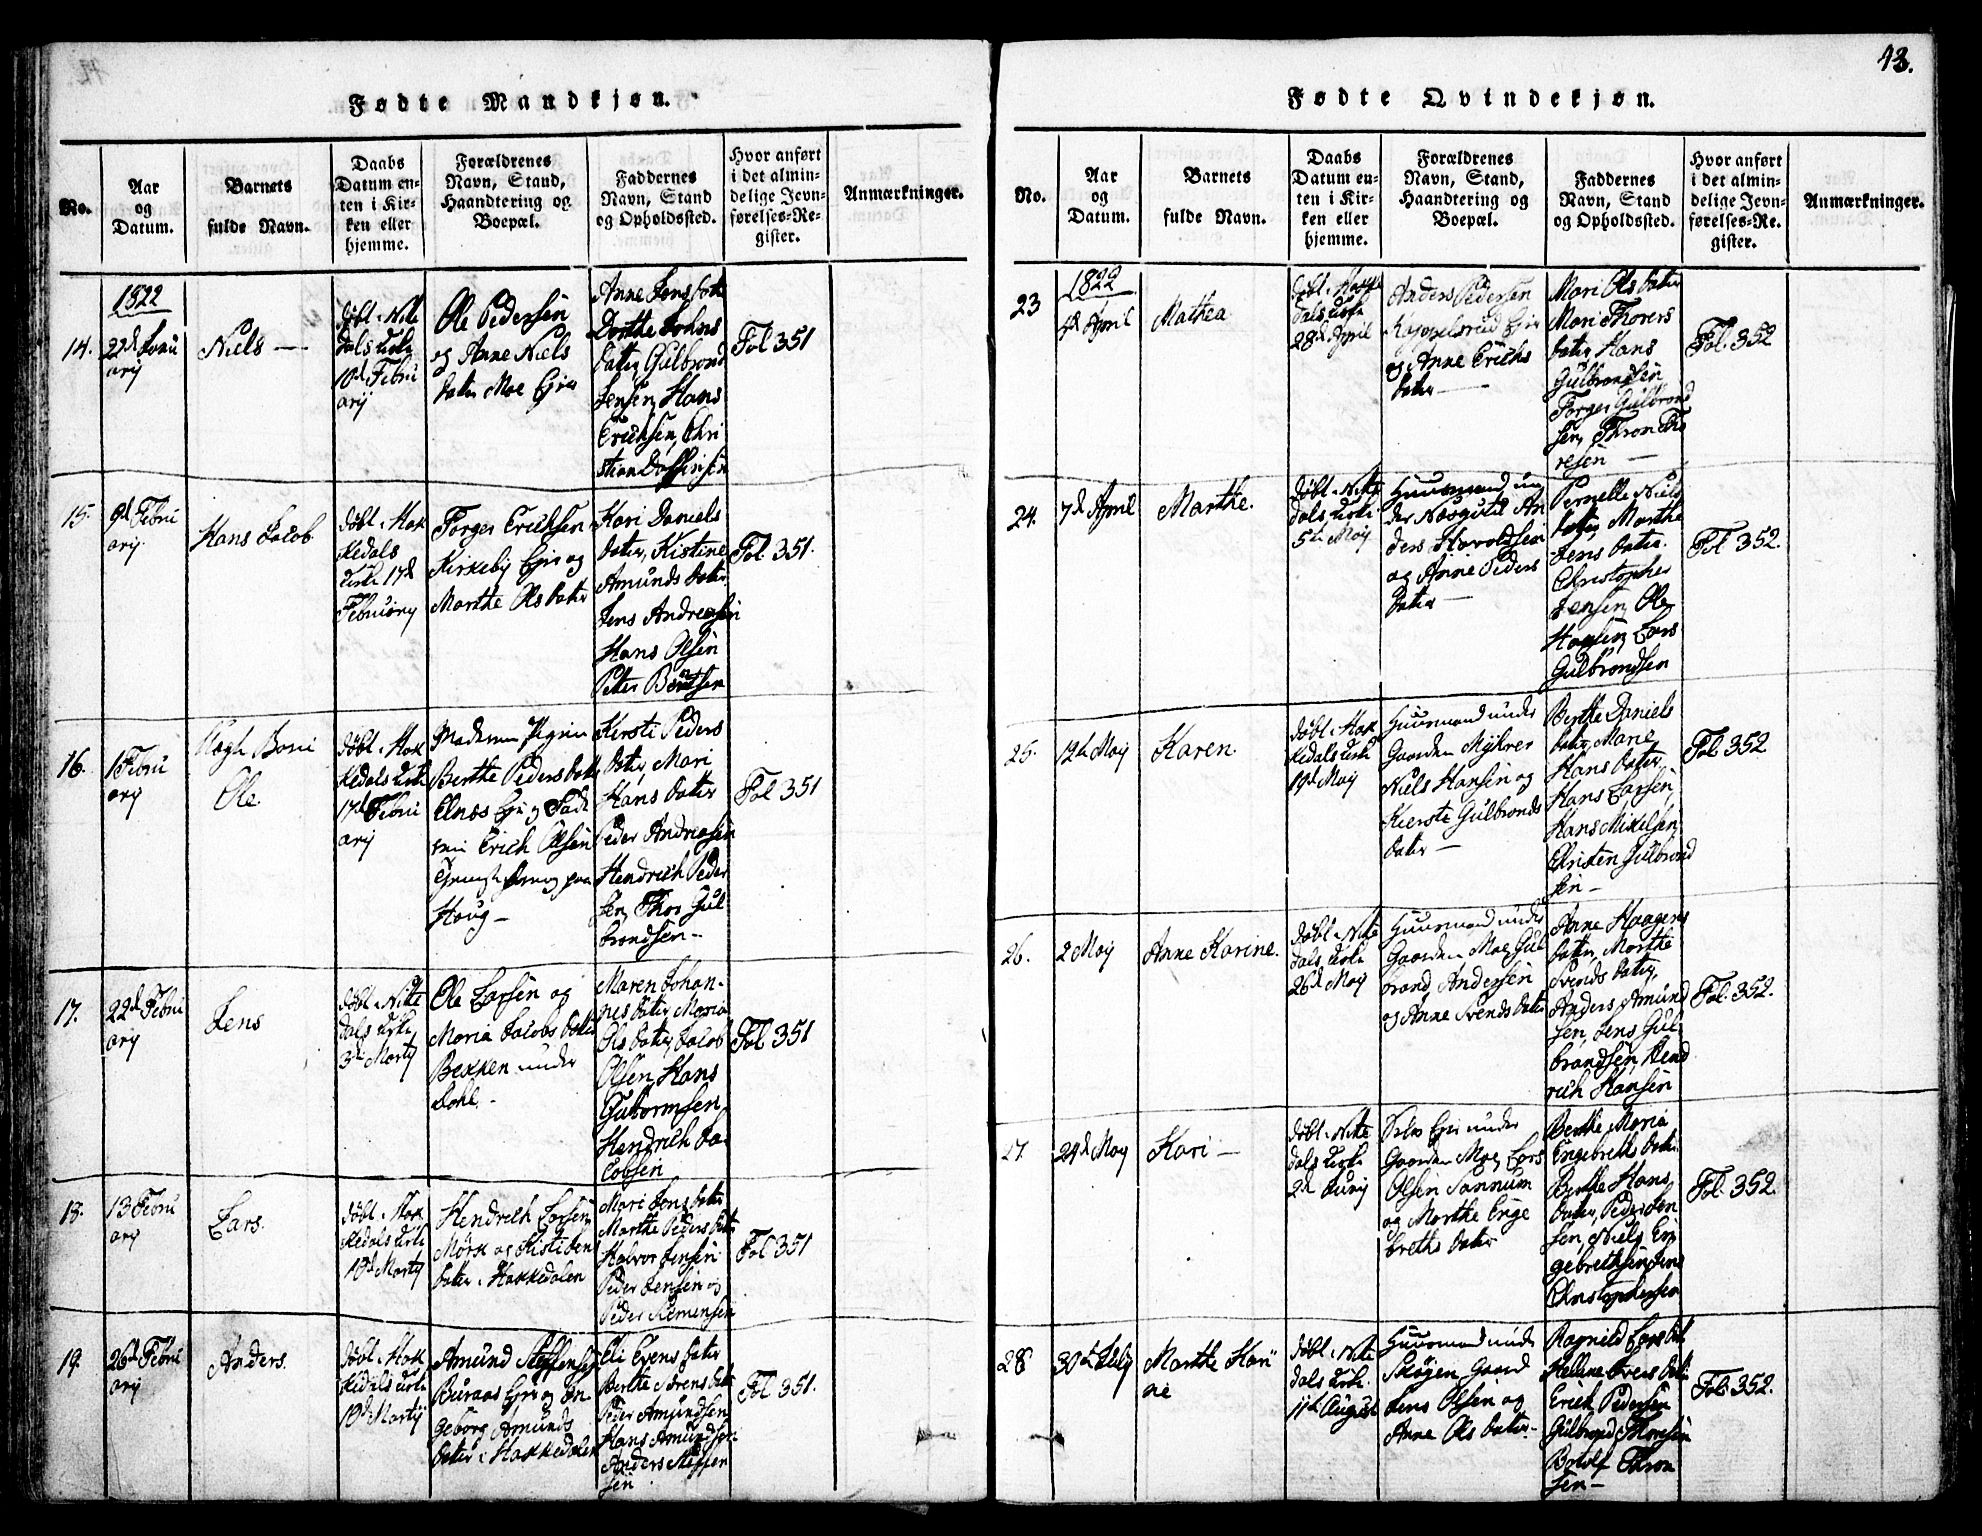 Fødte Mandkjøn.
No.
Aar
og
Datum.
Barnets
fulde Navn.
Daabs
Datum en-
ten i Kir-
ken eller
hjemme.
Forældrenes
Navn, Stand,
Haandtering og
Boepæl.
Faddernes
Navn, Stand
og Opholdssted.
Hvor anført
i det almin-
delige Jevn-
førelses-Re-
gister.
Anmærkninger.
14.
1822
ary
Niels
døbt i Nitte
dals Kirke
10d Febru
ary
Ole Pedersen
og Anne Niels
dater Moe Ejer
Anne Jensdater
Dorthe Johns
dater, Gulbrand
Jensen, Hans
Erichsen, Chri
stian
Fol 351
15.
9d Febru
ary.
Hans Jacob
døbt i Hak
kedals
Kirke 17d
February
Torger Erichsen
Kirkeby Ejer og
Marthe Olsdater
Kari Daniels
dater, Kistine
Amunds dater
Jens Andreasen
Hans Olsen
Petter
Fol 351.
16.
1 Febru
ary
Uægte Barn
Ole
døbt i Hak
kedals Kirke
17d Febru
ary
Berthe Pedersdater
Erich Olsen
Houg
Kersti Peders
dater, Mari
Hans dater
Peder Andreasen
Hendrich Peder
sen, Thor Gul
brandsen
Fol 351
17.
22d Febru
ary
Jens
døbt i Nitte
dals Kirke
3d Marty
Ole Larsen og
Maria Jacobs dater
Bekken under
Dahl
Maren Johan-
nes dater, Maria
Ols dater, Jacob
Olsen, Hans
Guttormsen,
Hendrich Ja
cobsen
Fol 351
18.
13 Febru
ary
Lars.
døbt i Hak
kedals Kirke
10d Marty
Hendrich Larsen
Mørk og Kisti Jens
dater i Hakkedalen
Mari Jens dater
Marthe Pedersdater
Halvor Jensen
Peder Jensen og
Peder Klemensen
Fol 351
19.
26d Febru
ary
Anders.
døbt i Hak
kedals Kirke
10d Marty
Amund Steffensen
Buraas Ejer og In
geborg Amunds
dater i Hakkedalen
Eli Evens dater
Berthe Sørens dater
Peder Amundsen
Hans Amundsen
Anders Steffen
sen
Fol 351.
43.
Fødte Qvindekjøn.
No.
Aar
og
Datum.
Barnets
fulde Navn.
Daabs
Datum en-
ten i Kir-
ken eller
hjemme.
Forældrenes
Navn, Stand,
Haandtering og
Boepæl.
Faddernes
Navn, Stand
og Opholdssted.
Hvor anført
i det almin-
delige Jevn-
førelses-Re-
gister.
Anmærkninger.
23
1822
4d April
Mathea
døbt i Hakke
dals Kirke
28d April
Anders Pedersen
Kappelsrud Ejer
og Anne Erichs
dater
Mari Ols dater
Mari Thorers
dater, Hans
Gulbrandsen
Torger Gulbrand
sen, Thron Tho
resen
Fol. 352
24.
7d April
Marthe.
døbt i Nitte
dals Kirke
5te May
Huusmand un
ders Haroldsen
og Anne Peders
dater
Pernelle Niels
dater, Marthe
Jens dater.
Christopher
Jensen, Ole
Hansen, Lars
Gulbrandsen
Fol 352.
25.
12te May
Karen.
døbt i Hak
kedals Kirke
19d May
Huusmand under
Gaarden Mykrer
Niels Hansen og
Kierste Gulbrands
dater
Berthe Daniels
dater, Marie
Hans dater,
Hans Larsen,
Hans Mikelsen,
Christen Gulbrand
sen
Fol. 352
26.
2 May
Anne Karine.
døbt i Nitte
dals Kirke
26d May
Huusmand under
Gaarden Moe, Gul
brand Andersen
og Anne Svends dater
Anne Haagens
dater, Marthe
Svends dater,
Anders Amund
sen, Jens Gul
brandsen, Hend
rich Hansen
Fol. 352.
27
24d May
Kari
døbt i Nitte
dals Kirke
2d Juny
under
Gaarden Moe, Lars
Olsen Sannum
og Marthe Enge
breths dater
Berthe Maria
Engebreths dater
Berthe Hans
dater, Peder Jen
sen, Niels En
gebrethsen, Jens
Christophersen
Fol. 352.
28
30d July
Marthe Kari
ne
døbt i Nitte
dals Kirke.
11te August
Huusmand under
Skøjen Gaard
Jens Olsen og
Anne Ols dater
Ragnild Lars dat
Hellene Evens dat
Erich Pedersen
Gulbrand Thoresen
Botolf Thron
sen
Fol. 352.